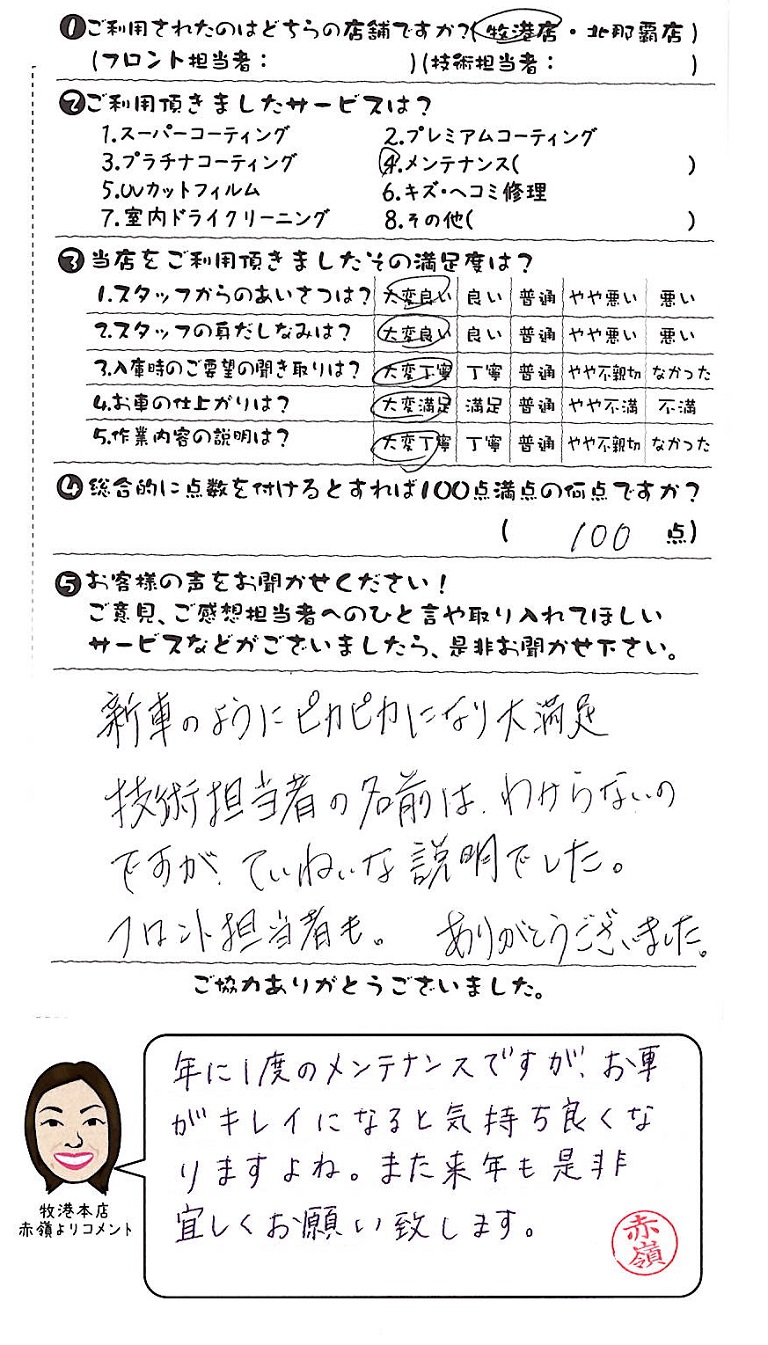 ❶ご利用されたのはどちらの店舗ですか?(牧港店・北那覇店)
(フロント担当者: )(技術担当者: )
❷ご利用頂きましたサービスは?
1.スーパーコーティング 2.プレミアムコーティング
3.プラチナコーティング 4.メンテナンス( )
5.UVカットフィルム 6.キズ・ヘコミ修理
7.室内ドライクリーニング 8.その他( )
❸当店をご利用頂きましたその満足度は?
1.スタッフからのあいさつは? 大変良い 良い 普通 やや悪い 悪い
2.スタッフの身だしなみは? 大変良い 良い 普通 やや悪い 悪い
3.入庫時のご要望の聞き取りは? 大変丁寧 丁寧 普通 やや不親切 なかった
4.お車の仕上がりは? 大変満足 満足 普通 やや不満 不満
5.作業内容の説明は? 大変丁寧 丁寧 普通 やや不親切 なかった
❹総合的に点数を付けるとすれば100点満点の何点ですか?
( 100 点)
❺お客様の声をお聞かせください!
ご意見、ご感想担当者へのひと言や取り入れてほしい
サービスなどがございましたら、是非お聞かせ下さい。
新車のようにピカピカになり大満足
技術担当者の名前は、わからないの
ですが、ていねいな説明でした。
フロント担当者も。 ありがとうございました。
ご協力ありがとうございました。
年に1度のメンテナンスですが、お車
がキレイになると気持ち良くな
りますよね。また来年も是非
宜しくお願い致します。
赤嶺
牧港本店
赤嶺よりコメント